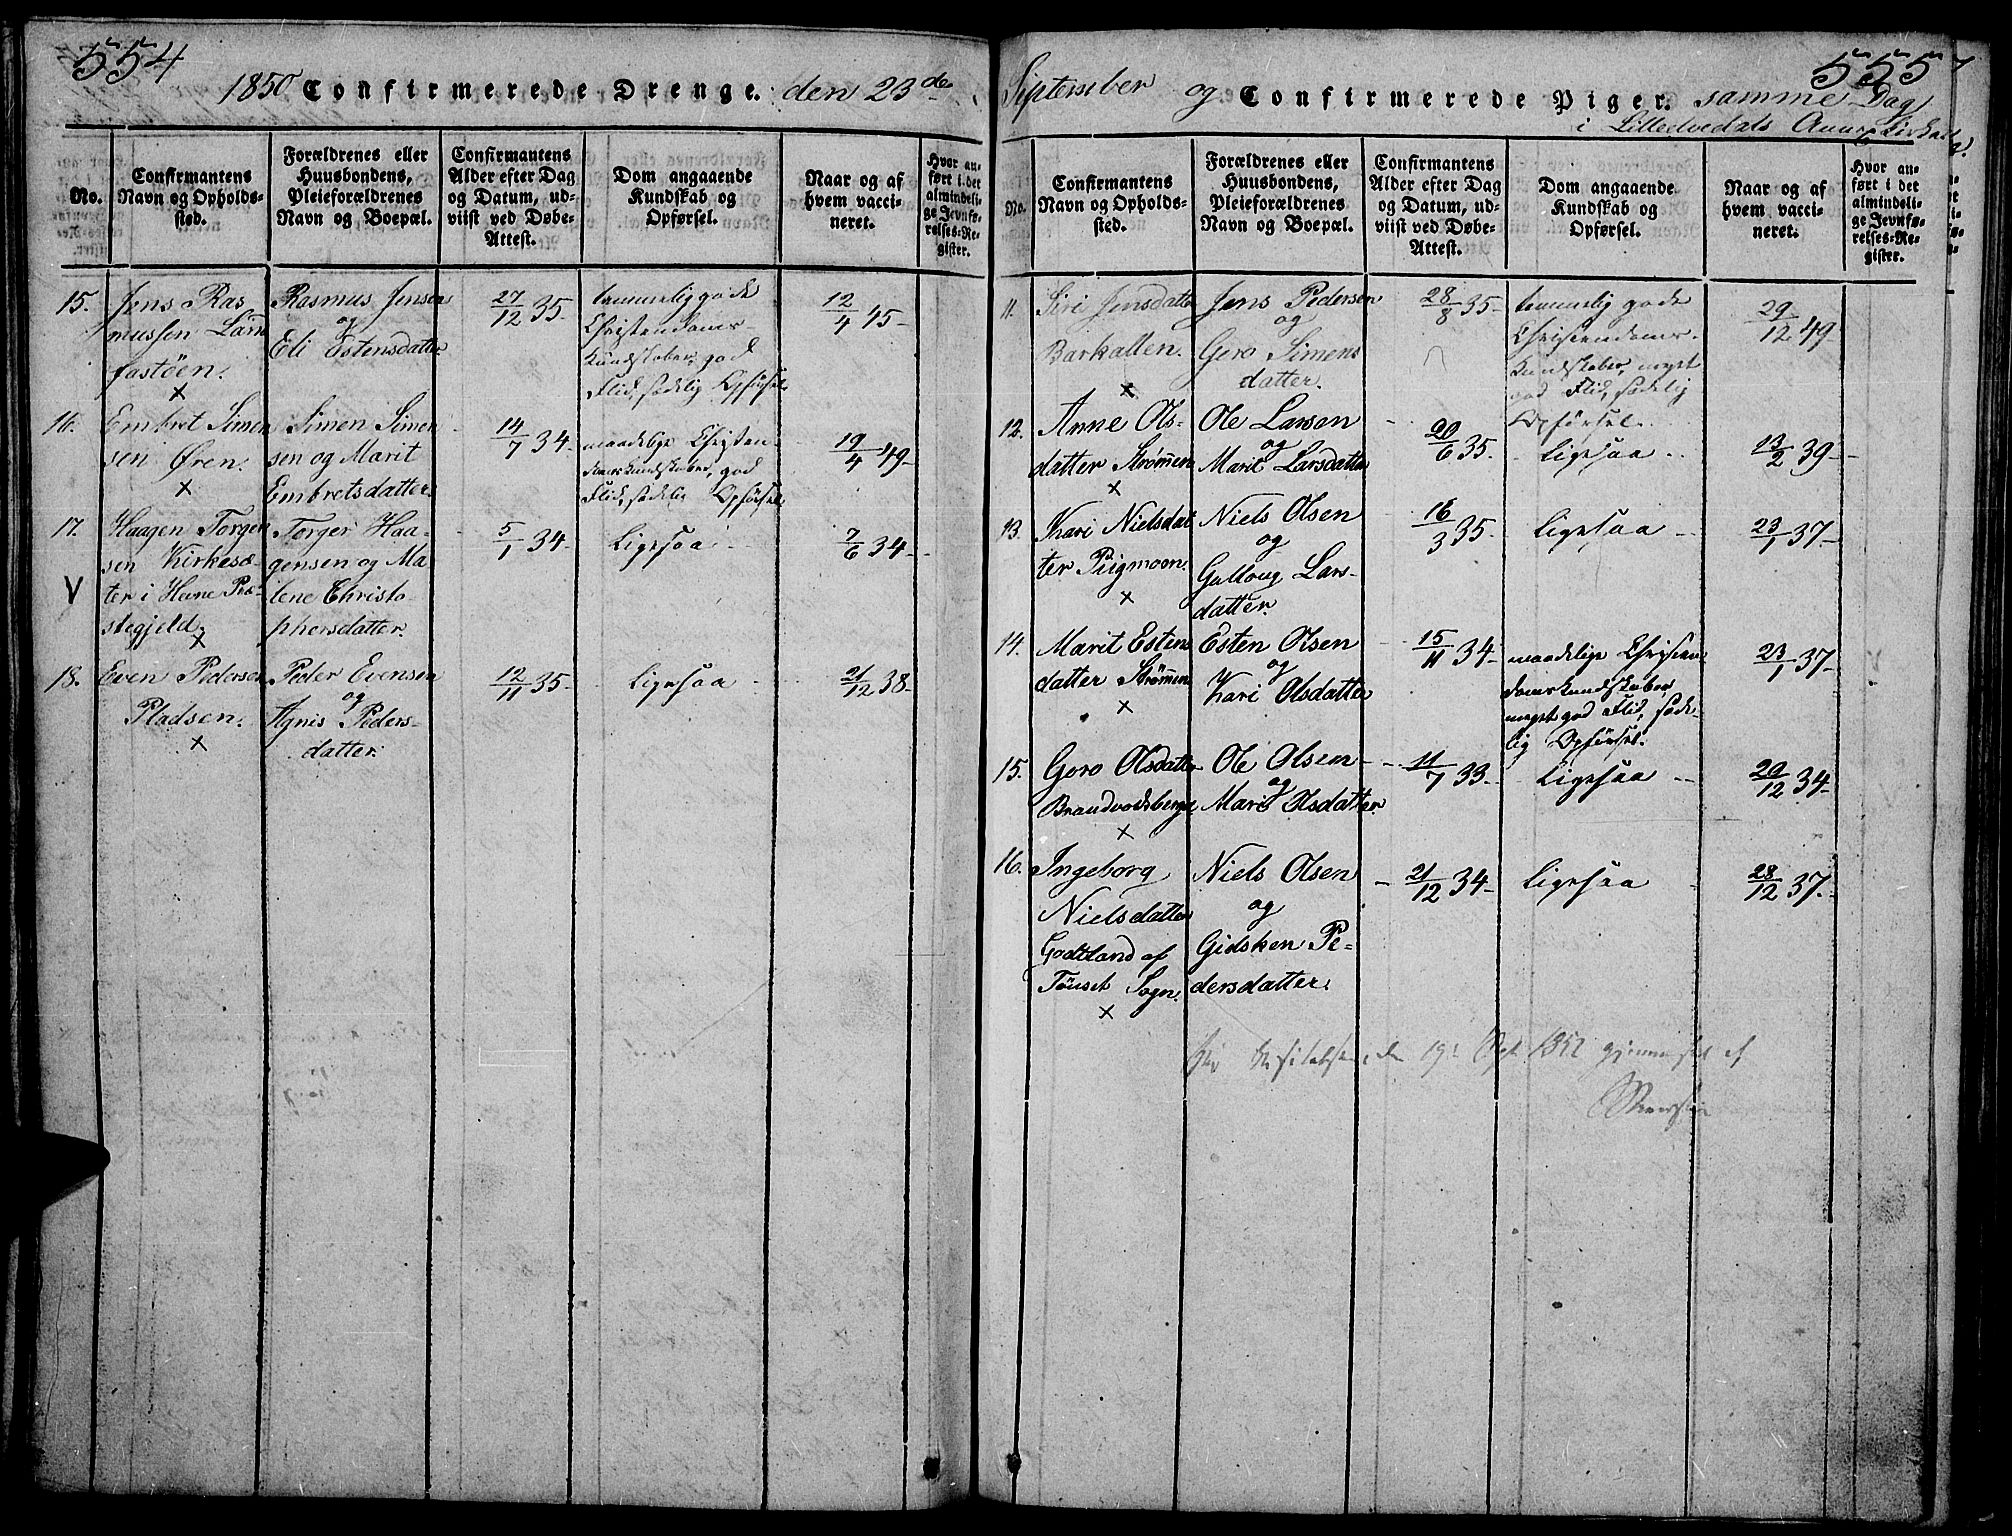 554
1850 Confirmerede Drenge. den 23de
No.
Confirmantens
Navn og Opholds-
sted.
Forældrenes eller
Huusbondens,
Pleieforældrenes
Navn og Boepæl.
Confirmantens
Alder efter Dag
og Datum, ud-
viist ved Døbe-
Attest.
Dom angaaende
Kundskab og
Opførsel.
Naar og af
hvem vacci-
neret.
Hvor an-
ført i det
almindeli-
ge Jevnfø-
relses-Re-
gister.
15.
Jens Ras
mussen
fastöen.
x
Rasmus Jensen
og
Eli Estensdatter
27/12 35.
temmelig gode
Christendoms-
kundskaber, god
Flid, sædelig Opførsel
12/4 45-
16.
Embret Simen
sen Øren.
x
Simen Simen
sen og Marit
Embretsdatter.
14/7 34-
maadelige Christen-
domskundskaber, god
Flid, sædelig Opførsel
19/4 49-
17.
V
Haagen Torger
sen Kirkesæ-
ter i Hevne Præ-
stegjeld.
x
Torger Haa-
gensen og Ma
lene Christo-
phersdatter.
5/1 34-
Ligesaa
7/6 34-
18.
Even Pedersen
Pladsen.
x
Peder Evensen
og
Agnis Peders-
datter.
12/11 35-
Ligesaa
21/12 38-
555
September og Confirmerede Piger. samme Dag
i Lilleelvedals Kirke
No.
Confirmantens
Navn og Opholds-
sted.
Forældrenes eller
Huusbondens,
Pleieforældrenes
Navn og Boepæl.
Confirmantens
Alder efter Dag
og Datum, ud-
viist ved Døbe-
Attest.
Dom angaaende
Kundskab og
Opførsel.
Naar og af
hvem vacci-
neret.
Hvor an-
ført i det
almindeli-
ge Jevnfø-
relses-Re-
gister.
11.
Siri Jensdatter
Barkalten.
x
Jens Pedersen
og
Gero Simens
datter.
28/8 35-
temmelig gode
Christendoms-
kundskaber, meget
god Flid, sædelig
Opførsel.
29/12 49-
12.
Anne Ols-
datter Strømen
x
Ole Larsen
og
Marit Larsdatter
20/6 35.
Ligesaa
13/2 39-
13.
Kari Nielsdat
ter Pügmoon.
x
Niels Olsen
og
Lars-
datter.
16/3 35.
Ligesaa
23/1 37-
14.
Marit Estens
datter Strømen
x
Esten Olsen
og
Kari Olsdatter
15/11 34-
maadelige Christen
domskundskaber
meget god Flid, sæde-
lig Opførsel.
23/1 37-
15.
Gero Olsdatter
Brandvodsberget
x
Ole Olsen
og
Marit Olsdatter
11/7 33-
Ligesaa
20/12 34-
16.
Ingeborg
Nielsdatter
Godtland af
Tönset Sogn.
x
Niels Olsen
og
Gidsken Pe-
dersdatter.
21/12 34-
Ligesaa
28/12 37.
Visitatsen den 19. Sept. 1852 gjennemseet af